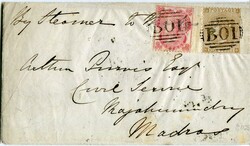 By Steamer to
B01
B01
Arthur Purvis Esqr
Civil Service
Rajahmundry
Madras